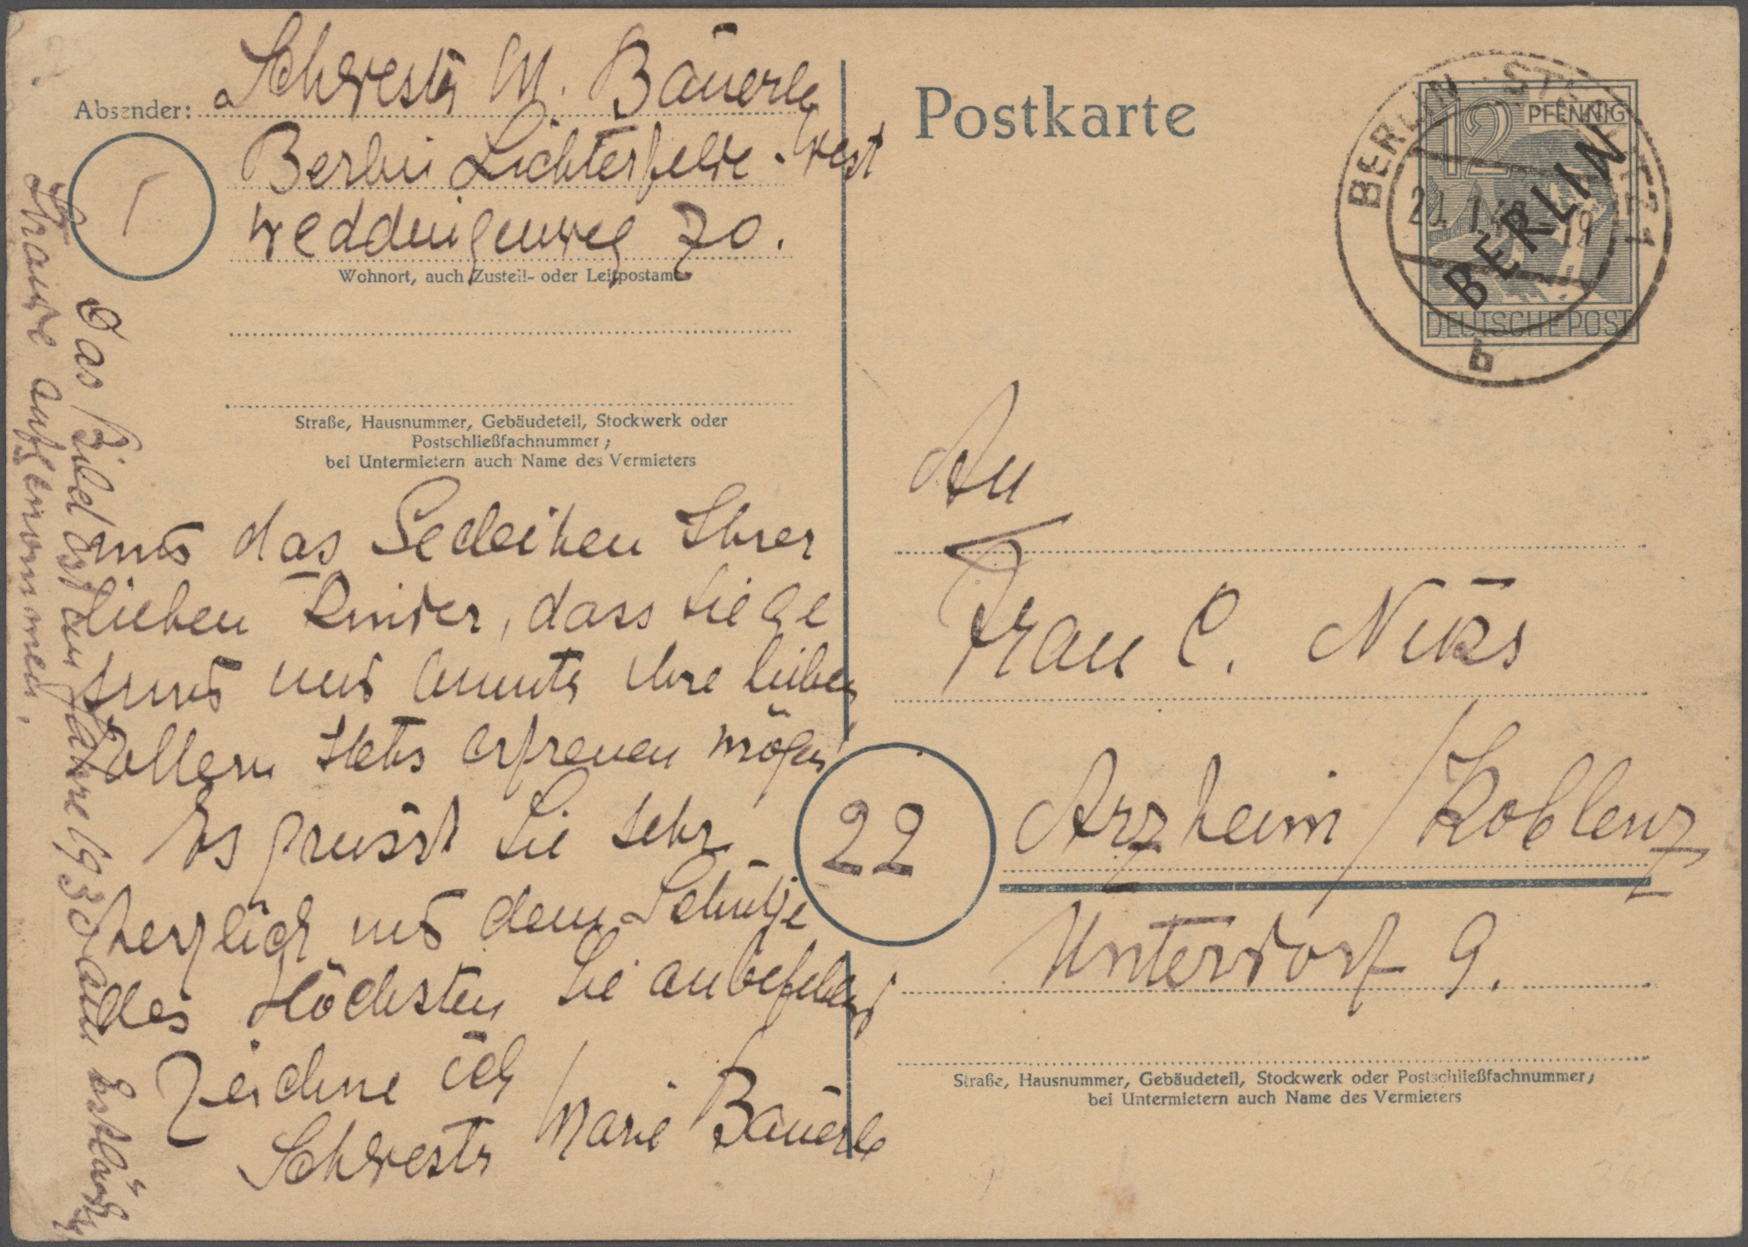 Absender: Schwester M. Bäuerle
Berlin Lichterfelde-West
Weddingenweg 70.
Wohnort, auch Zustell- oder Leitpostamt
Straße, Hausnummer, Gebäudeteil, Stockwerk oder
Postschließfachnummer;
bei Untermietern auch Name des Vermieters
und das Gedeihen Ihrer
lieben Kinder, dass sie
und ihre lieben
Eltern stets erfreuen mögen!
Es grüsst Sie sehr
herzlich und dem Schutze
des Höchsten Sie anbefehlend
zeichne ich
Schwester Marie Bäuerle
Das Bild ist im Jahre 1930 am
Strande aufgenommen.
Postkarte
12 PFENNIG
BERLIN
DEUTSCHE POST
BERLIN
b
An
Frau C. Niks
22
Arzheim / Koblenz
Unterdorf 9.
Straße, Hausnummer, Gebäudeteil, Stockwerk oder Postschließfachnummer;
bei Untermietern auch Name des Vermieters